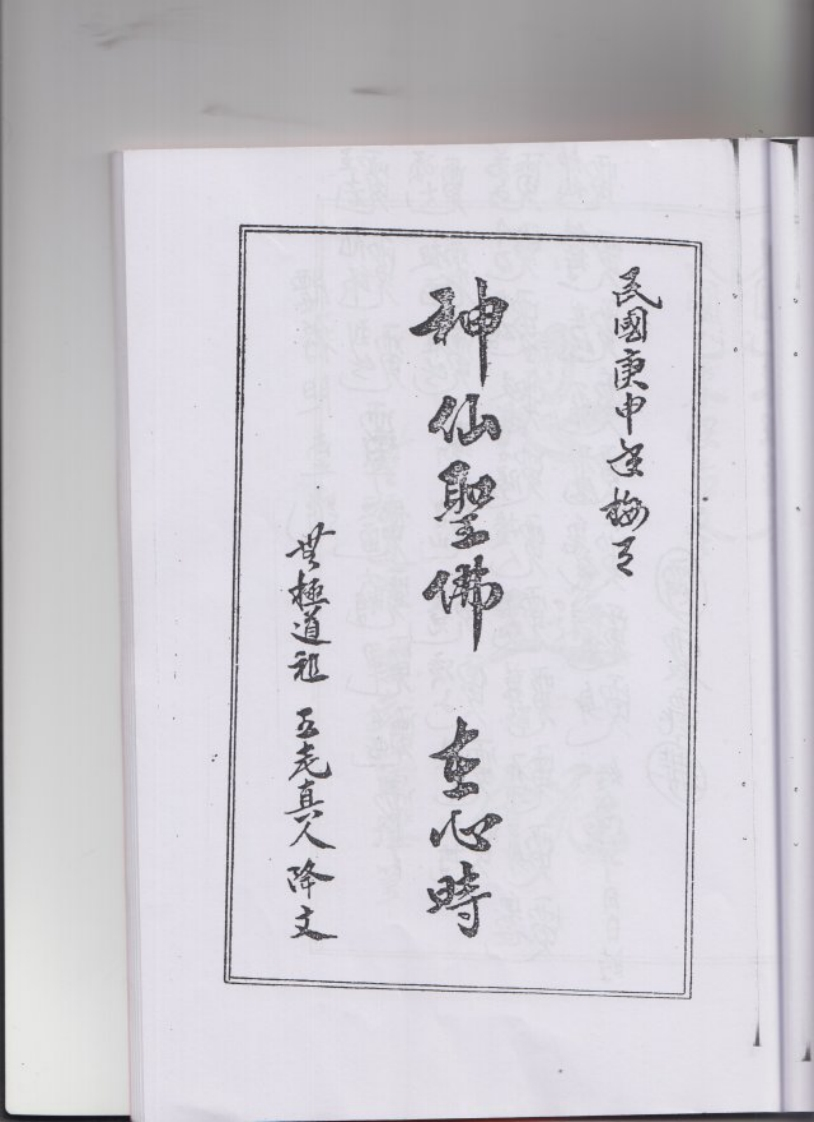 民國庚申年梅月
神仙聖佛 在心時
無極道祖 五老真人 降文